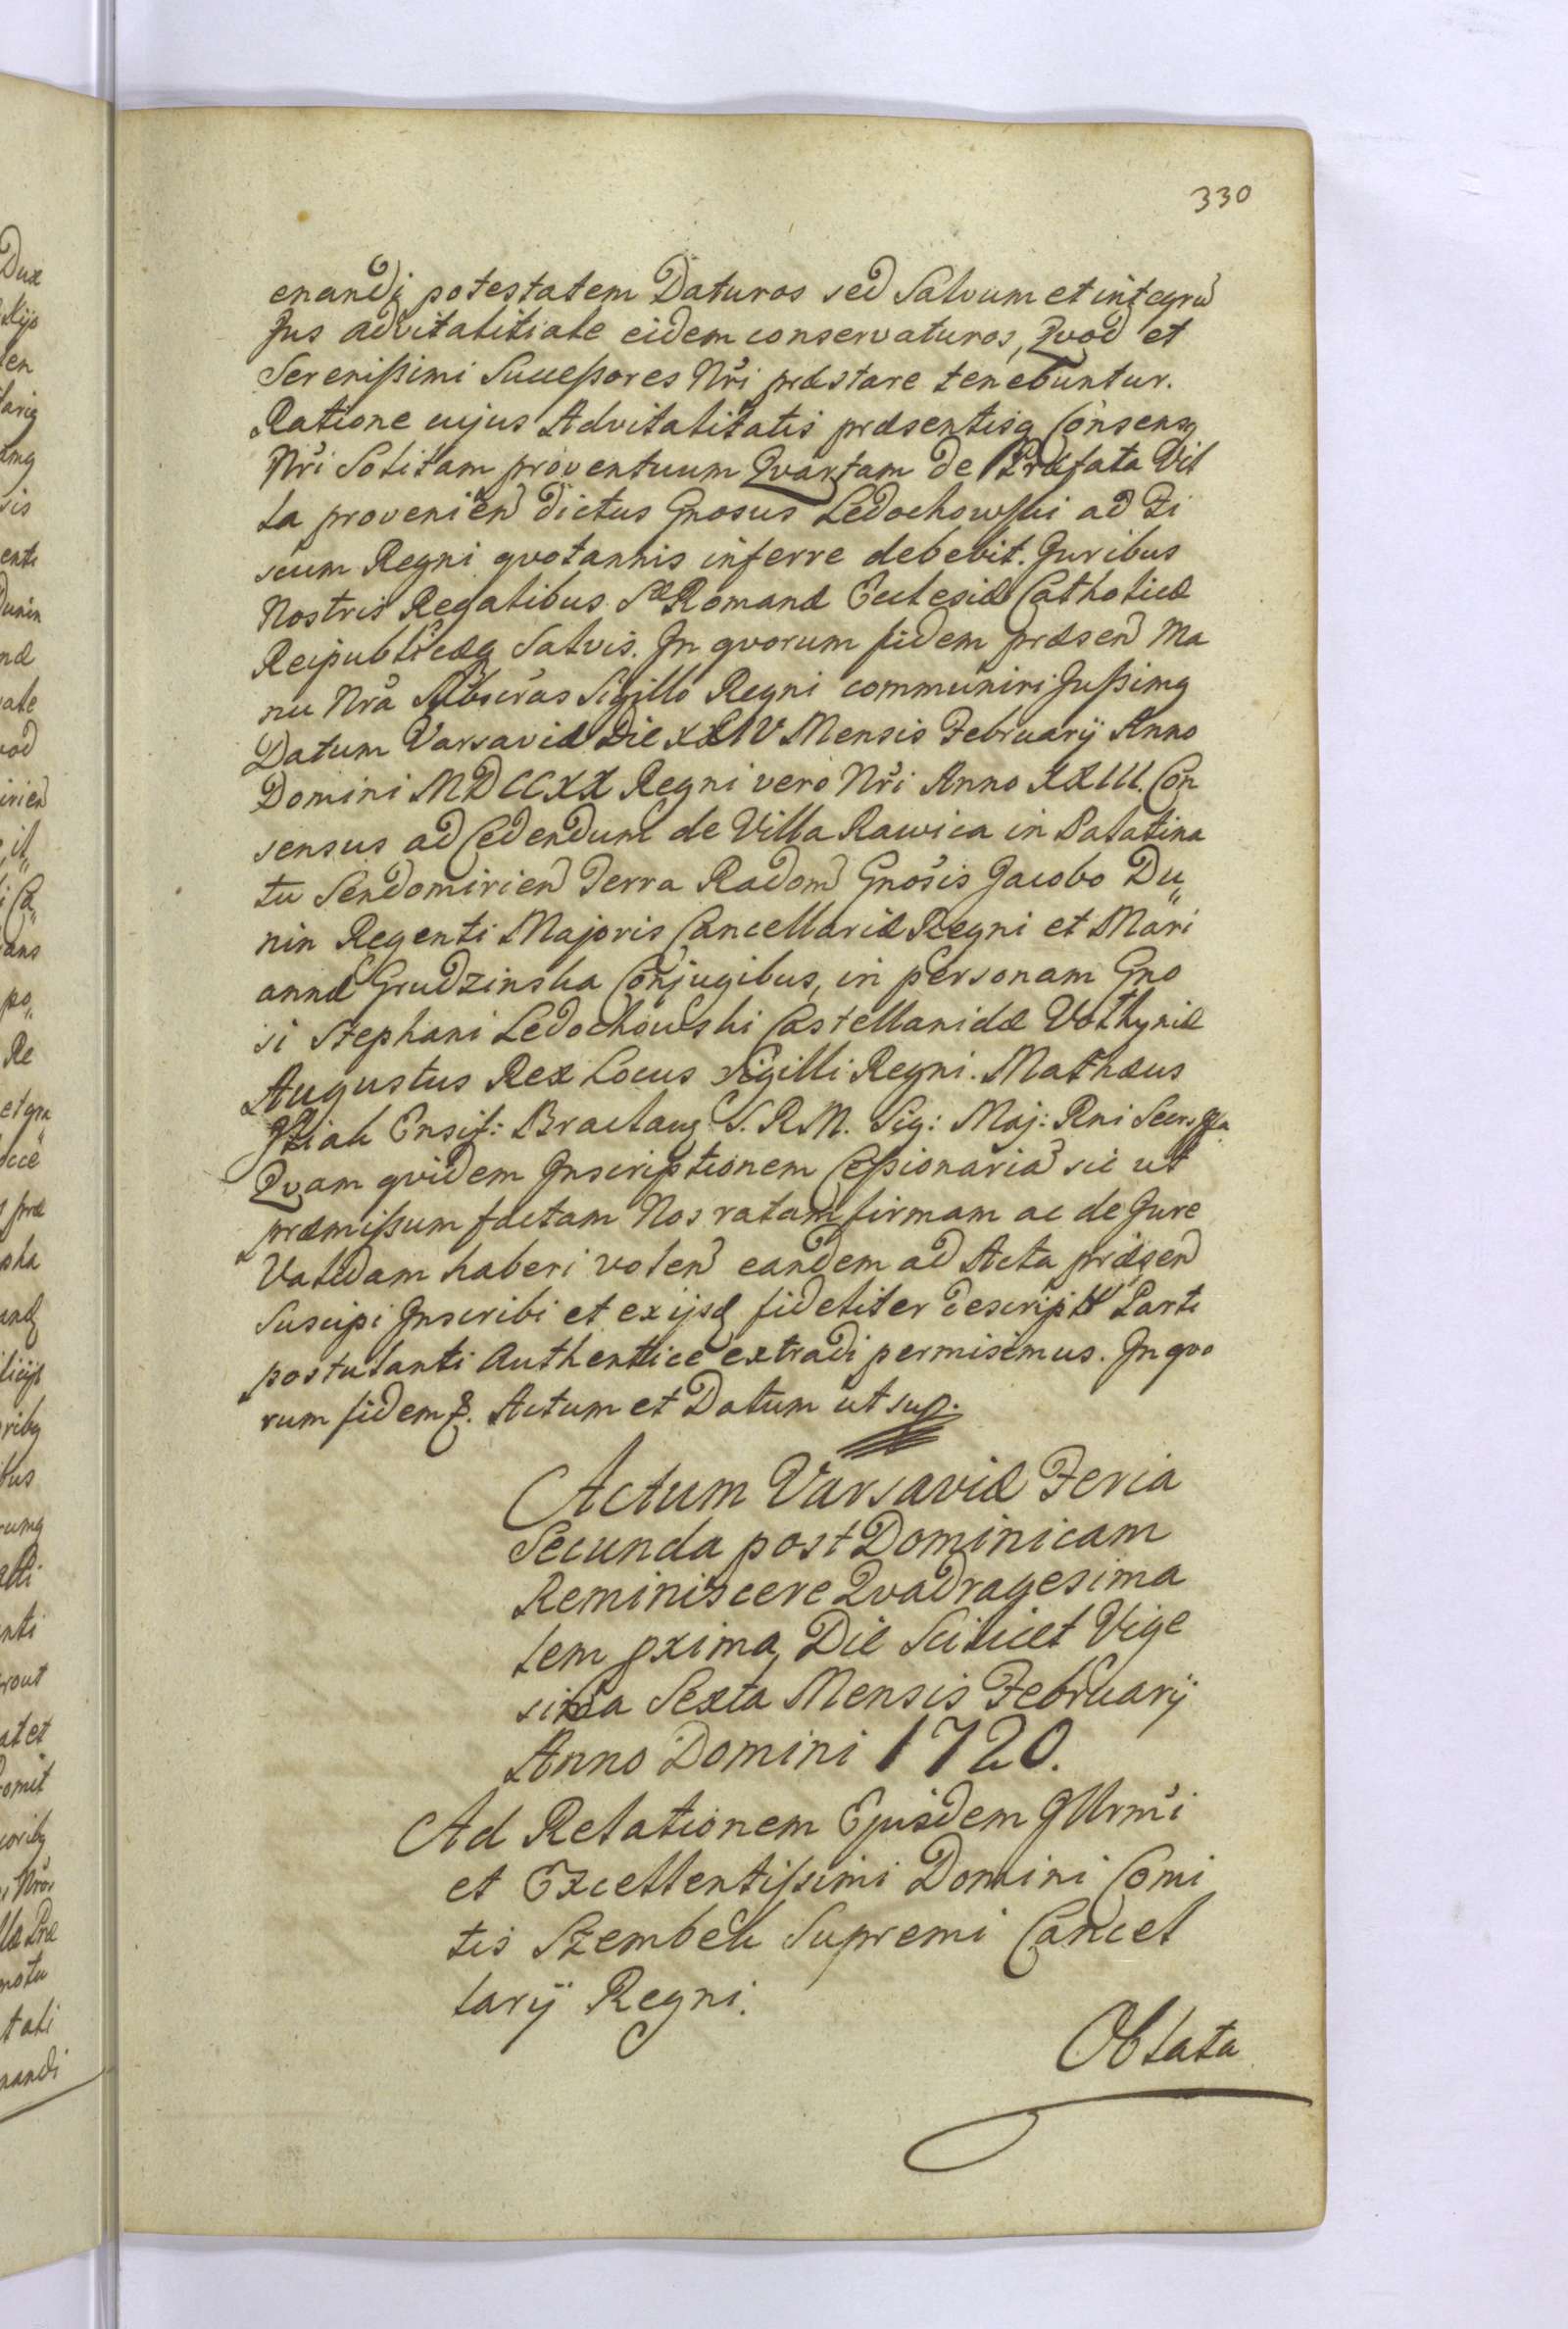 330
enandi potestatem Daturos sed Salvum et integrū
Jus advitalitiale eidem conservaturos, Qvod et
Serenißimi Succeßores Nři præstare tenebuntur.
Ratione cujus Advitalitatis præsentisq Consensq
Nři Solitam proventuum Qvartam de Præfata Vil
la provenień dictus Gnosus Ledochowski ad Fi
scum Regni qvotannis inferre debebit. Juribus
Nostris Regalibus Sæ Romanæ Ecclesiæ Catholicæ
Reipublicæq Salvis. In qvorum fidem præsen̄ Ma
nu Nřa Subscřas Sigillo Regni communiri Jußimq
Datum Varsaviæ Die XXIV Mensis February Anno
Domini MDCCXX Regni vero Nři Anno XXIII. Con
sensus ad Cedendum de Villa Rawica in Palatina
tu Sendomirień Terra Radom̄ Gnosis Jacobo Du„
nin Regenti Majoris Cancellariæ Regni et Mari
annæ Grudzinska Conjugibus, in personam Gno
si Stephani Ledochowski Castellanidæ Volhyniæ
Augustus Rex Locus Sigilli Regni. Mathæus
Ensif: Braclaug S. R M. Sig: Maj: Rni Secrs
Qvam qvidem Inscriptionem Ceßionariā sic ut
præmißum factam Nos ratam firmam ac de Jure
Validam haberi volen̄ eandem ad Acta præsen̄
Suscipi Inscribi et ex ijsđ fideliter descript Parti
postulanti Authentice extradi permisimus. In qvo
rum fidem &. Actum et Datum ut sup.
Actum Varsaviæ Feria
Secunda post Dominicam
Reminiscere Qvadragesima
lem pxima, Die Scilicet Vige
sima Sexta Mensis February
Anno Domini 1720.
Ad Relationem Ejusdem Illrmi
et Excellentißimi Domini Comi
tis Szembek Supremi Cancel
lary Regni.
Oblata